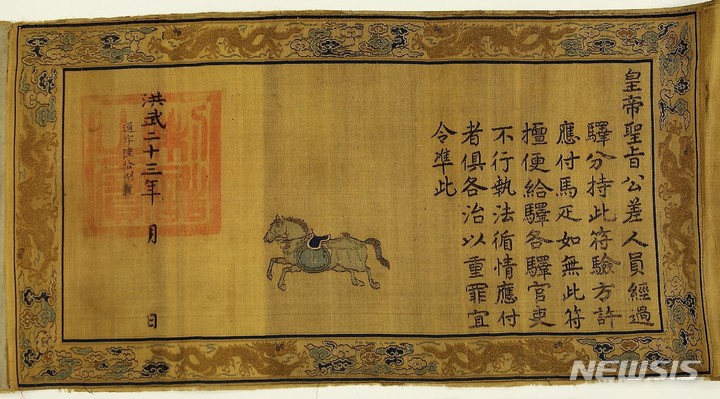 皇帝聖旨公差人員經過
驛分持此符驗方許
應付馬疋如無此符
擅便給驛各驛官吏
不行執法循情應付
者俱各治以重罪宜
令準此
洪武二十三年 月 日
通字陸拾
NEWSIS